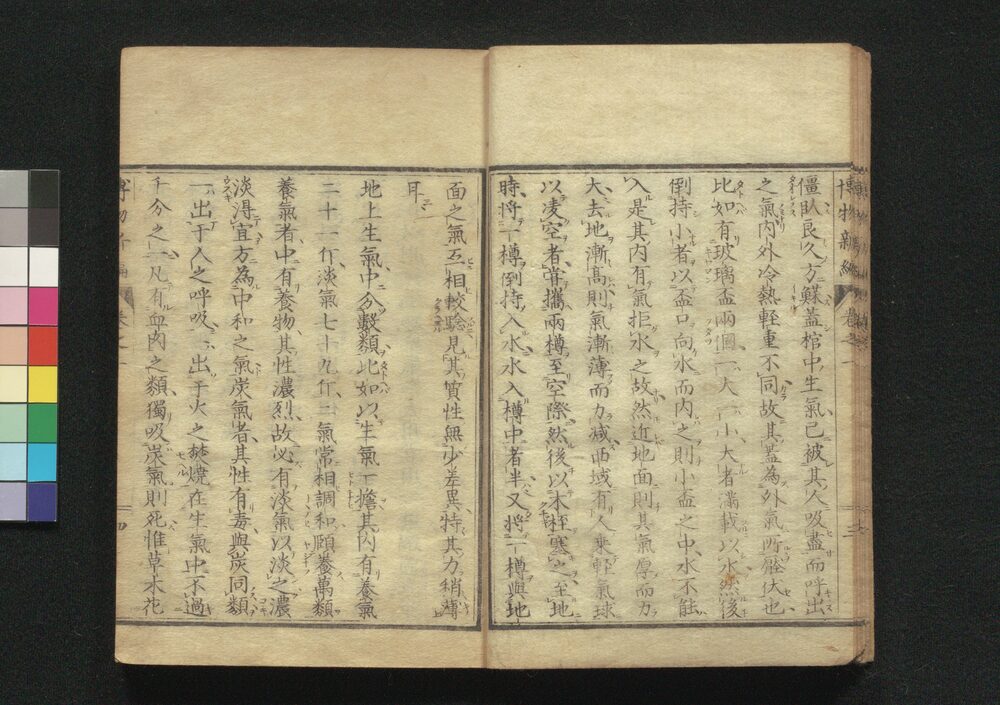 博物新編
僵臥良久方蘇蓋棺中生氣已被其人吸盡而呼出
之氣内外冷熱輕重不同故其蓋為外氣所壓伏也
比如有玻璃盃兩個一大一小大者滿載以水然後
倒持小者以盃口向水而内之則小盃之中水不能
入是其内有氣拒水之故然近地面則其氣厚而力
大去地漸高則氣漸薄而力减西域有人乘輕氣球
以凌空者常攜兩樽至空際然後以木桎塞之至地
時將一樽倒持入水水入樽中者半又將一樽與地
面之氣互相較驗見其質性無少差異特其力稍薄
耳
地上生氣中分數類比如以生氣一擔其内有養氣
二十一斤淡氣七十九斤二氣常相調和頤養萬類
養氣者中有養物其性濃烈故必有淡氣以淡之濃
淡得宜方為中和之氣炭氣者其性有毒與炭同類
一出于人之呼吸一出于火之焚燒在生氣中不過
千分之一凡有血肉之類獨吸炭氣則死惟草木花